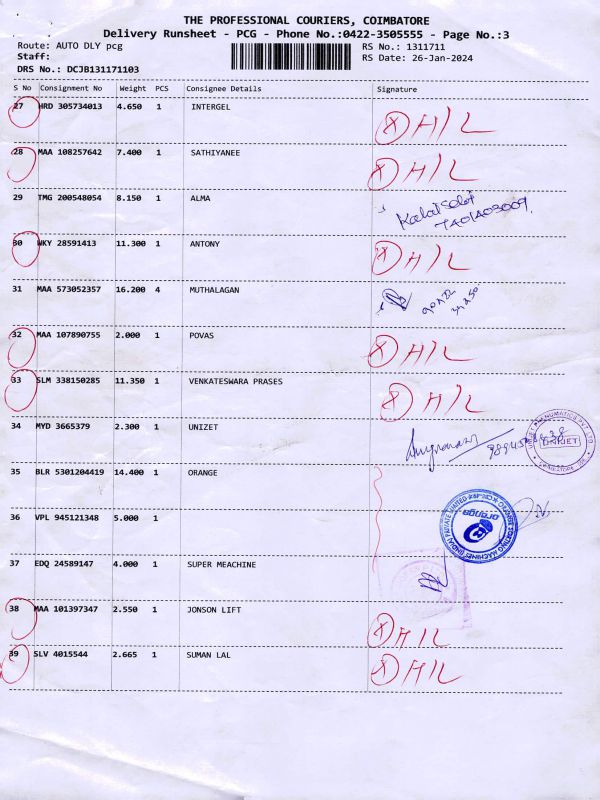 THE PROFESSIONAL COURIERS, COIMBATORE
Delivery Runsheet - PCG - Phone No.:0422-3505555 - Page No.:3
Route: AUTO DLY pcg RS No.: 1311711
Staff: RS Date: 26-Jan-2024
DRS No.: DCJB131171103
S No Consignment No Weight PCS Consignee Details Signature
27 HRD 305734013 4.650 1 INTERGEL (X) H/L
28 MAA 108257642 7.400 1 SATHIYANEE (X) H/L
29 TMG 200548054 8.150 1 ALMA
30 WKY 28591413 11.300 1 ANTONY (X) H/L
31 MAA 573052357 16.200 4 MUTHALAGAN
32 MAA 107890755 2.000 1 POVAS (X) H/L
33 SLM 338150285 11.350 1 VENKATESWARA PRASES (X) H/L
34 MYD 3665379 2.300 1 UNIZET
35 BLR 5301204419 14.400 1 ORANGE
36 VPL 945121348 5.000 1
orange
37 EDQ 24589147 4.000 1 SUPER MEACHINE
38 MAA 101397347 2.550 1 JONSON LIFT (X) H/L
39 SLV 4015544 2.665 1 SUMAN LAL (X) H/L